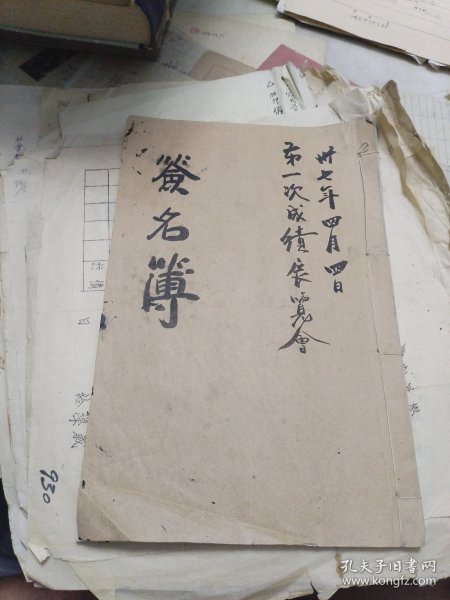 卅七年四月四日
第一次成績展覽會
簽名簿
930
孔夫子旧书网
www.kongfz.com